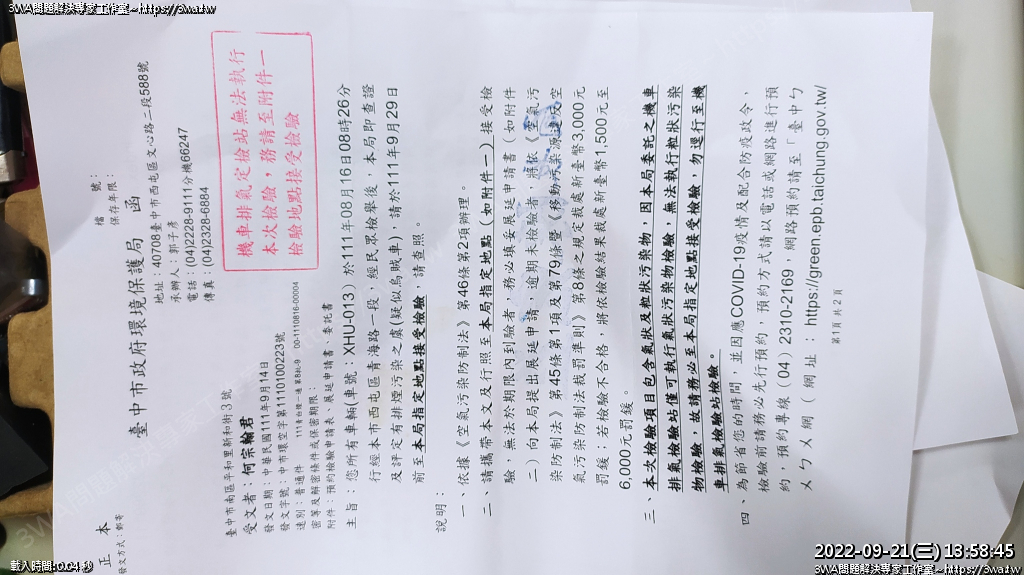 3WA問題解決專家工作室~https://3wa.tw
正 本
發文方式：郵寄
檔　號：
保存年限：
臺中市政府環境保護局　函
地址：40708臺中市西屯區文心路二段588號
承辦人：郭子彥
電話：(04)2228-9111分機66247
傳真：(04)2328-6884
機車排氣定檢站無法執行
本次檢驗，務請至附件一
檢驗地點接受檢驗
臺中市南區平和里新和街3號
受文者：何宗翰君
發文日期：中華民國111年9月14日
發文字號：中市環空字第1110100223號
速別：普通件
111青白檢一通 第8批-9　00-1110816-00004
密等及解密條件或保密期限：
附件：預約檢驗申請表、展延申請書、委託書
主旨：您所有車輛(車號：XHU-013）於111年08月16日08時26分
行經本市西屯區青海路一段，經民眾檢舉後，本局即查證
及評定有排煙污染之虞(疑似烏賊車)，請於111年9月29日
前至本局指定地點接受檢驗，請查照。
說明：
一、依據《空氣污染防制法》第46條第2項辦理。
二、請攜帶本文及行照至本局指定地點（如附件一）接受檢
驗，無法於期限內到驗者，務必填妥展延申請書（如附件
二）向本局提出展延申請，逾期未檢驗者，將依《空氣污
染防制法》第45條第1項及第79條暨《移動污染源違反空
氣污染防制法裁罰準則》第8條之規定裁處新臺幣3,000元
罰鍰；若檢驗不合格，將依檢驗結果裁處新臺幣1,500元至
6,000元罰鍰。
三、本次檢驗項目包含氣狀及粒狀污染物，因本局委託之機車
排氣檢驗站僅可執行氣狀污染物檢驗，無法執行粒狀污染
物檢驗，故請務必至本局指定地點接受檢驗，勿逕行至機
車排氣檢驗站檢驗。
四、為節省您的時間，並因應COVID-19疫情及配合防疫政令，
檢驗前請務必先行預約，預約方式請以電話或網路進行預
約，預約專線（04）2310-2169，網路預約請至「臺中ㄅ
ㄨㄅㄨ網（網址：https://green.epb.taichung.gov.tw/
第1頁 共2頁
2022-09-21(三) 13:58:45
載入時間：0.04 秒
3WA問題解決專家工作室~https://3wa.tw